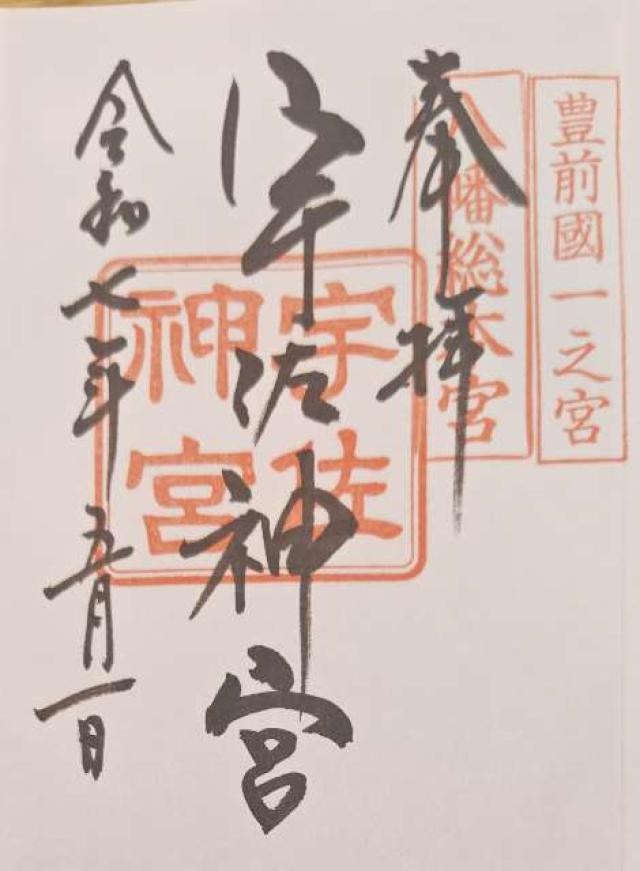 豊前國一之宮
八幡総本宮
奉拝
宇佐神宮
宇佐
神宮
令和七年五月一日